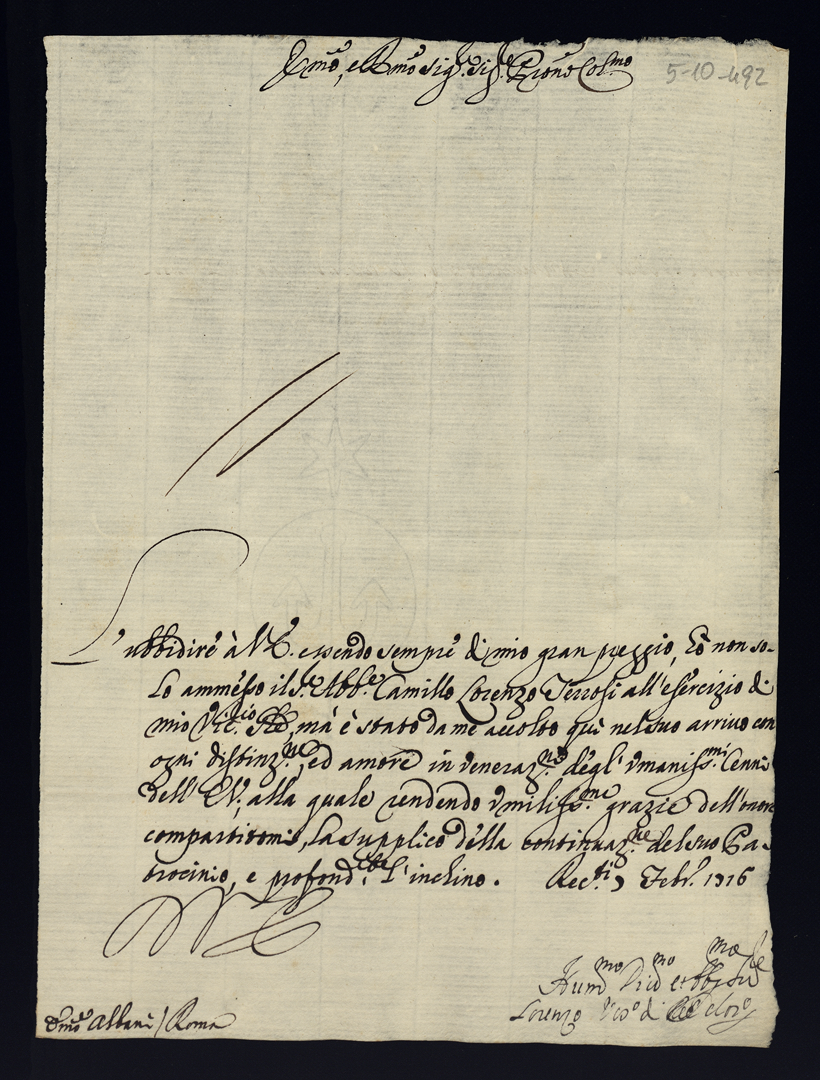 Em̃o, e R.mo Sig.r Sig.r P̃rone Col.mo
5-10-492
L'ubbidire à V.E. essendo sempre di mio gran preggio, hò non so-
lo ammesso il S.r Abb.e Camillo Lorenzo Terrosi all'esercizio di
mio ma è stato da me accolto quì nel suo arrivo con
ogni distinz.ne, ed amore in veneraz.ne degl' vmaniss.mi Cenni
dell' E.V., alla quale rendendo vmiliss.me grazie dell'onor
compartitomi, la supplico della continuaz.ne del suo Pa-
trocinio, e profond.te l'inchino. Rec.ti 3 Febr.o 1716
Hum.mo Div.mo et obb.mo
Lorenzo Vesc.o di
Em̃o Albani / Roma